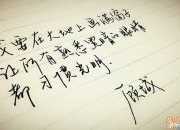 我要在大地上画满窗子
让所有熟悉黑暗的眼睛
都习惯光明
顾城